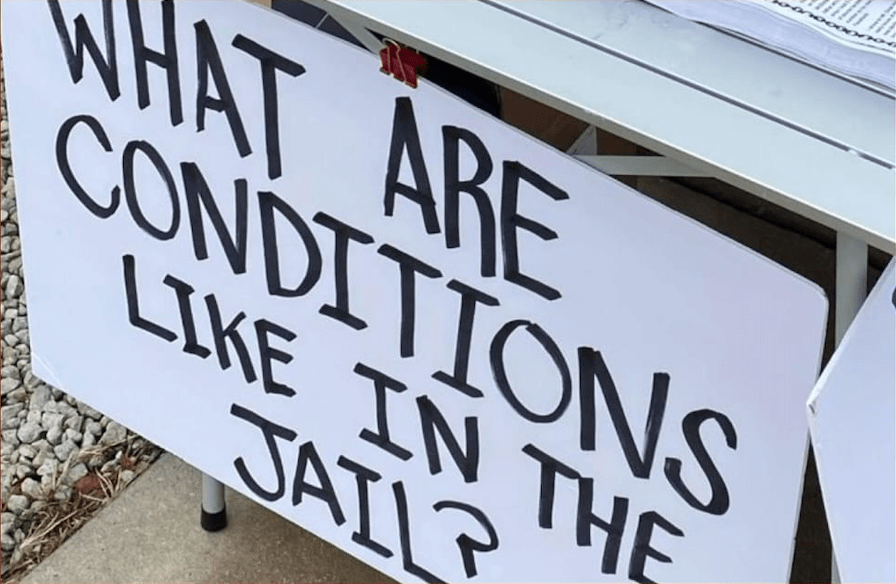 WHAT ARE
CONDITIONS
LIKE IN THE
JAIL?